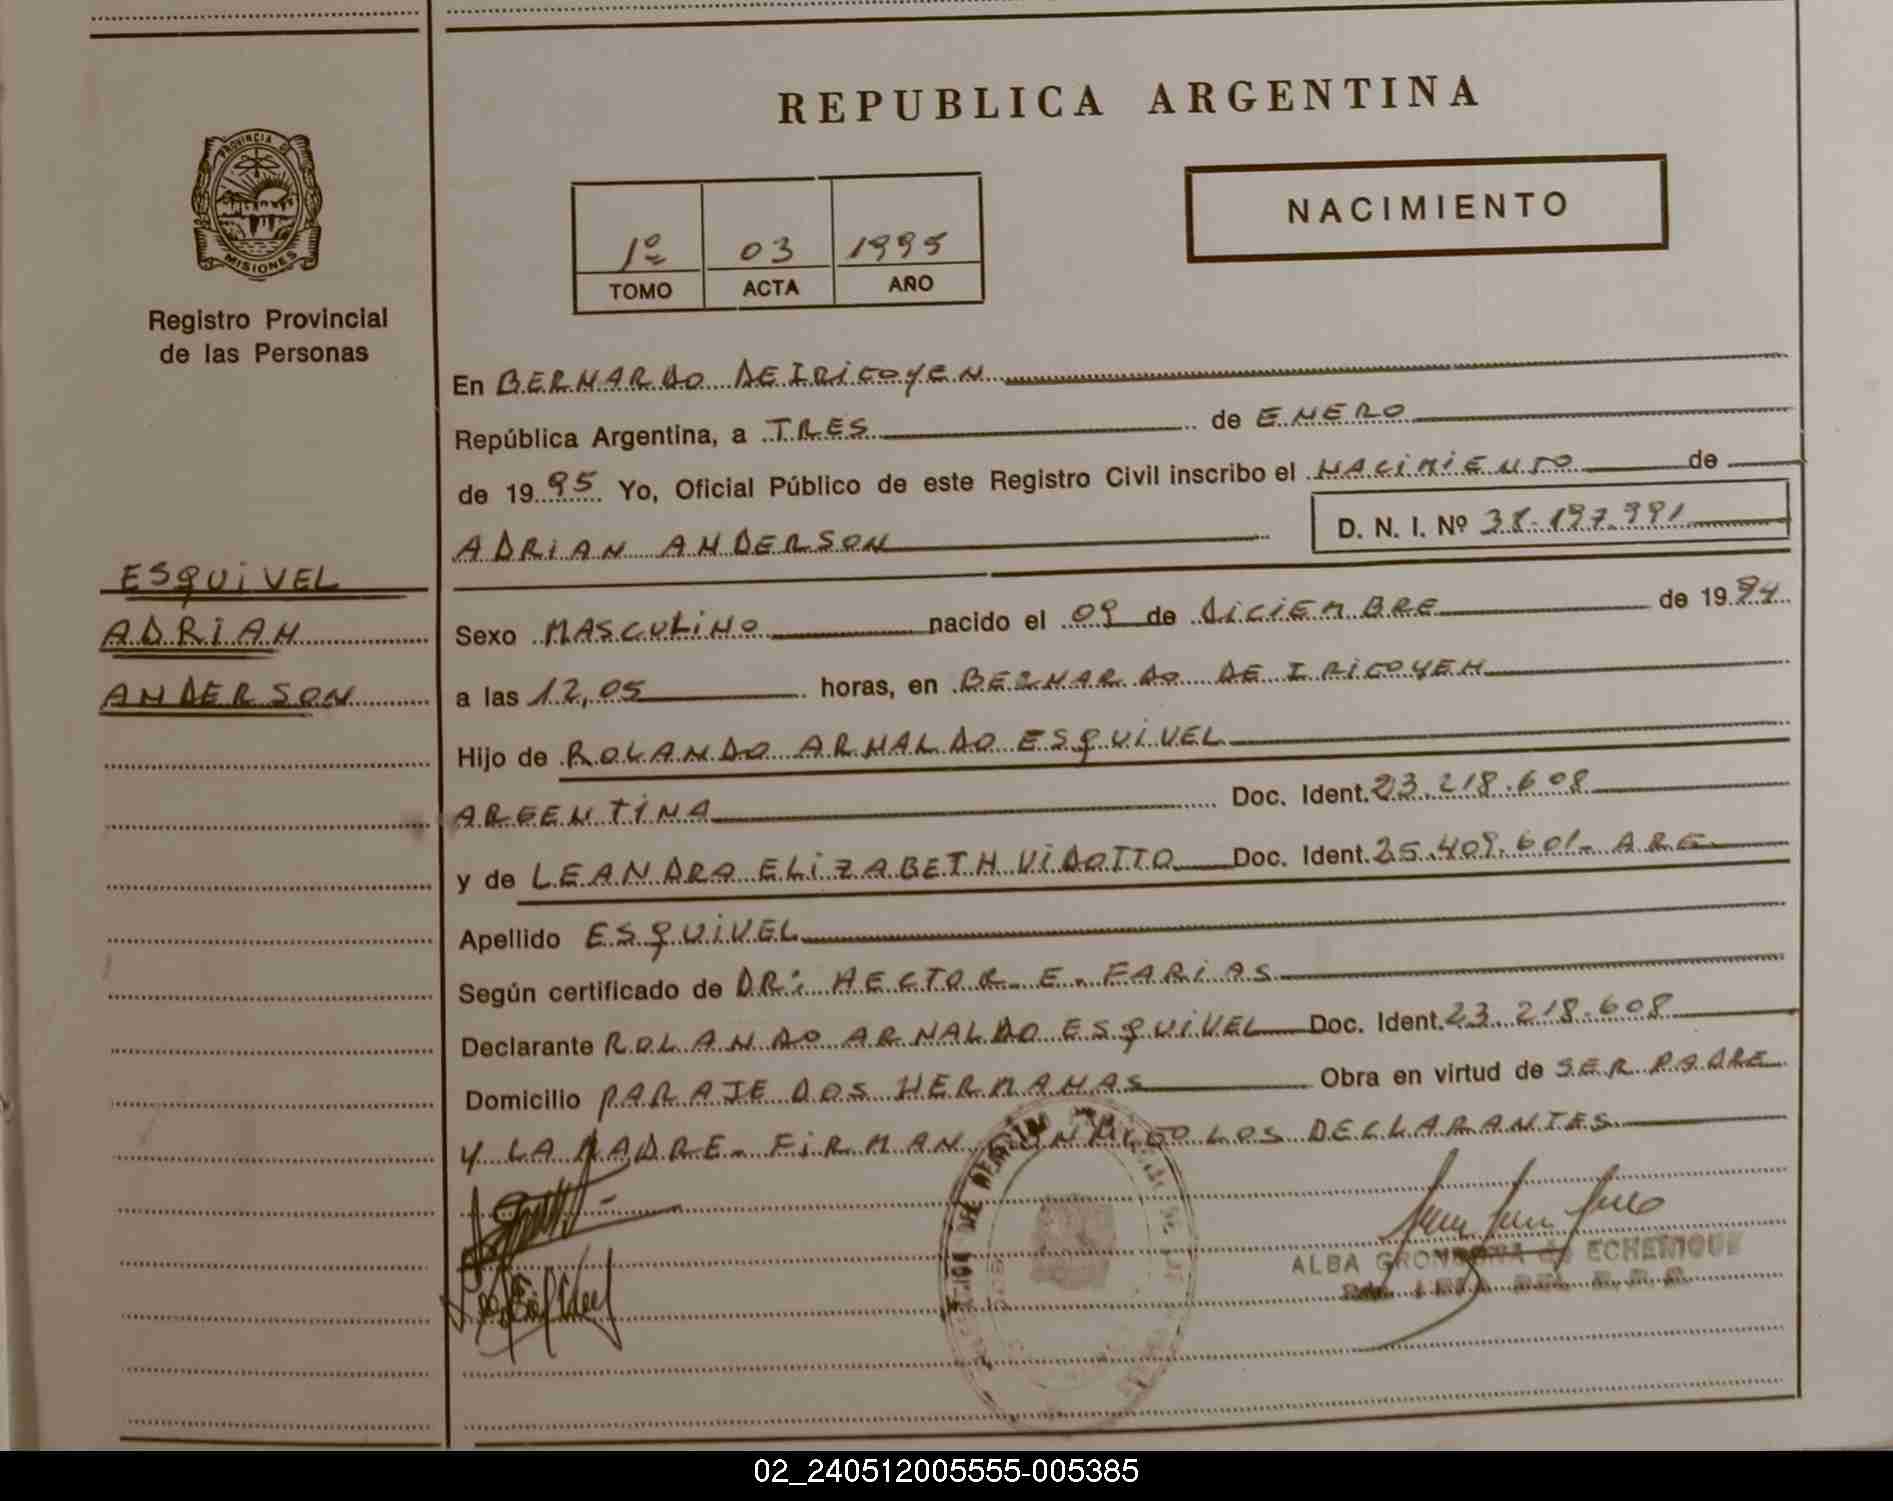 REPUBLICA ARGENTINA
PROVINCIA D
MISIONES
Registro Provincial
de las Personas
1º 03 1995
TOMO ACTA AÑO
NACIMIENTO
En BERNARDO DE IRIGOYEN
República Argentina, a TRES de ENERO
de 1995 Yo, Oficial Público de este Registro Civil inscribo el NACIMIENTO de
ADRIAN ANDERSON D. N. I. Nº 38.197.991
ESQUIVEL
ADRIAN
ANDERSON
Sexo MASCULINO nacido el 09 de DICIEMBRE de 1994
a las 12,05 horas, en BERNARDO DE IRIGOYEN
Hijo de ROLANDO ARNALDO ESQUIVEL
ARGENTINA Doc. Ident. 23.218.608
y de LEANDRA ELIZABETH VIDOTTO Doc. Ident. 25.409.601- ARG
Apellido ESQUIVEL
Según certificado de DR: HECTOR E. FARIAS
Declarante ROLANDO ARNALDO ESQUIVEL Doc. Ident. 23.218.608
Domicilio PARAJE DOS HERMANAS Obra en virtud de SER PADRE
Y LA MADRE. FIRMAN CONMIGO LOS DECLARANTES
ALBA GRONDONA de ECHENIQUE
02_240512005555-005385